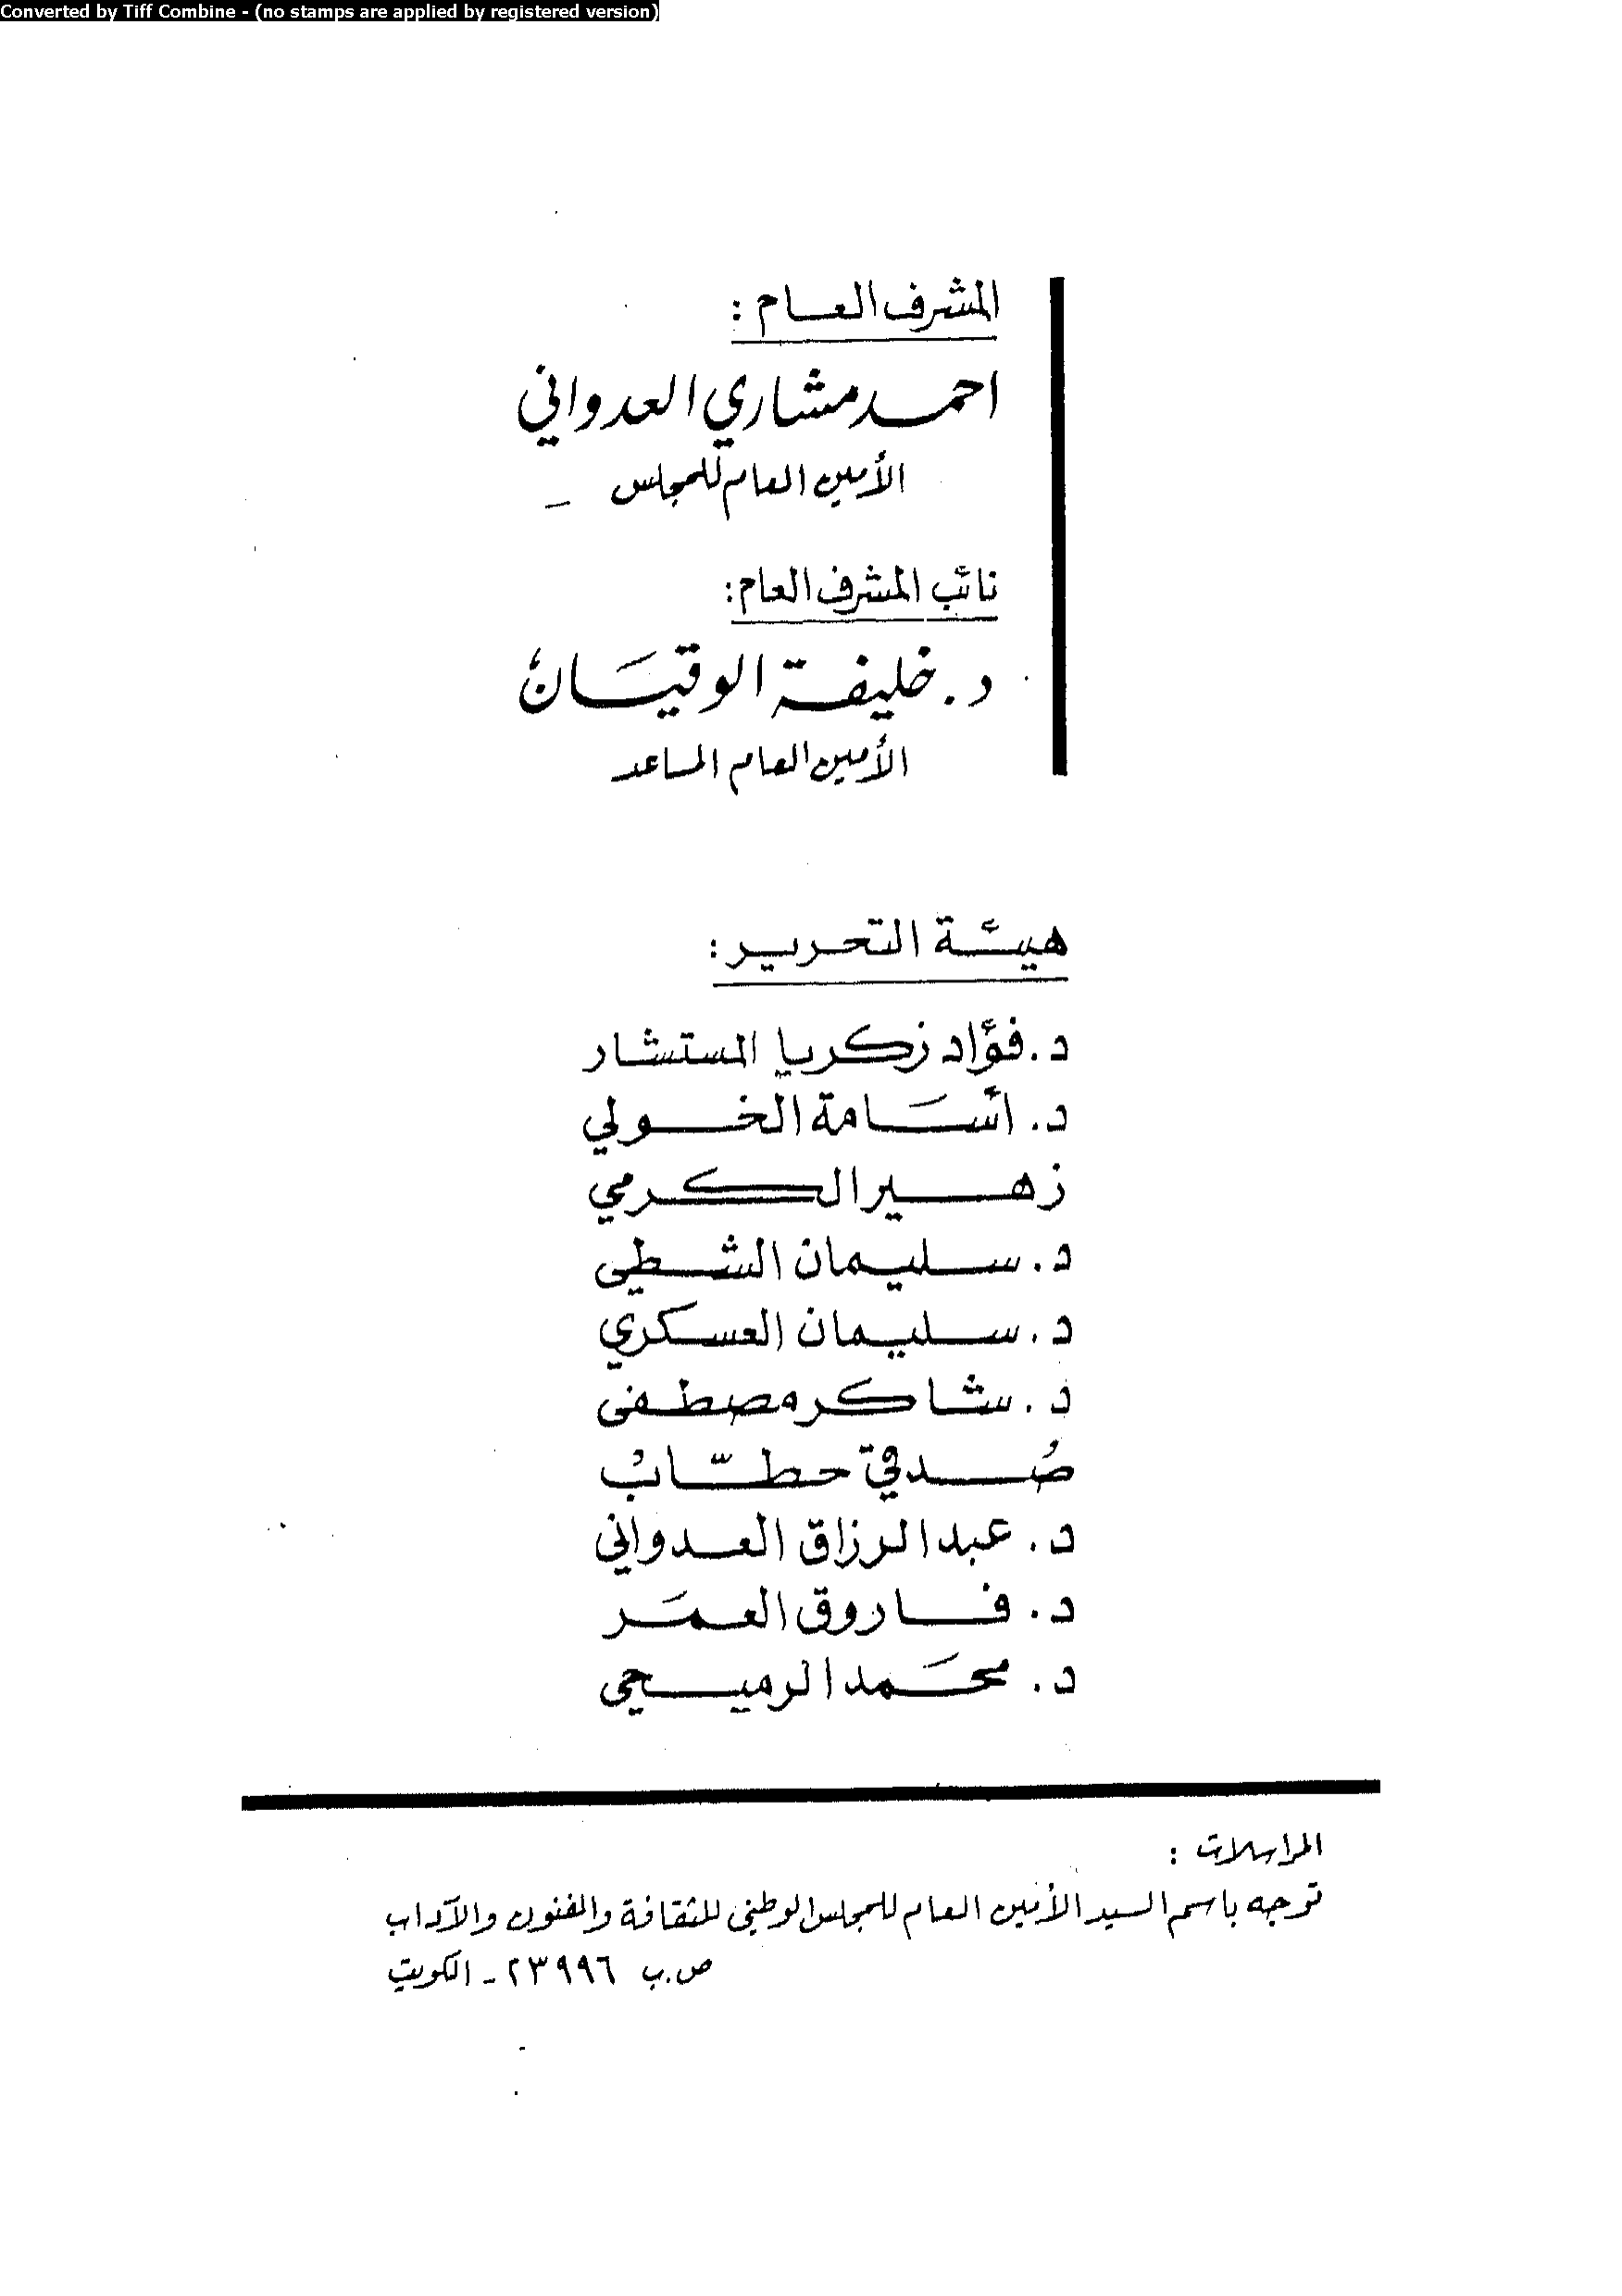 Converted by Tiff Combine - (no stamps are applied by registered version)
المشرف العام :
احمد مشاري العدواني
الأمين العام للمجلس
نائب المشرف العام:
د. خليفة الوقيَان
الأمين العام المساعد
هيئة التحرير :
د. فؤاد زكريا المستشار
د. أسَامة الخولي
زهير الكرمي
د. سليمان الشطي
د. سليمان العسكري
د. شاكر مصطفى
صُدقي حطّاب
د. عبدالرزاق العدواني
د. فاروق العمَر
د. محَمد الرميحي
المراسلات :
توجه باسم السيد الأمين العام للمجلس الوطني للثقافة والفنون والآداب
ص.ب ٢٣٩٩٦ - الكويت